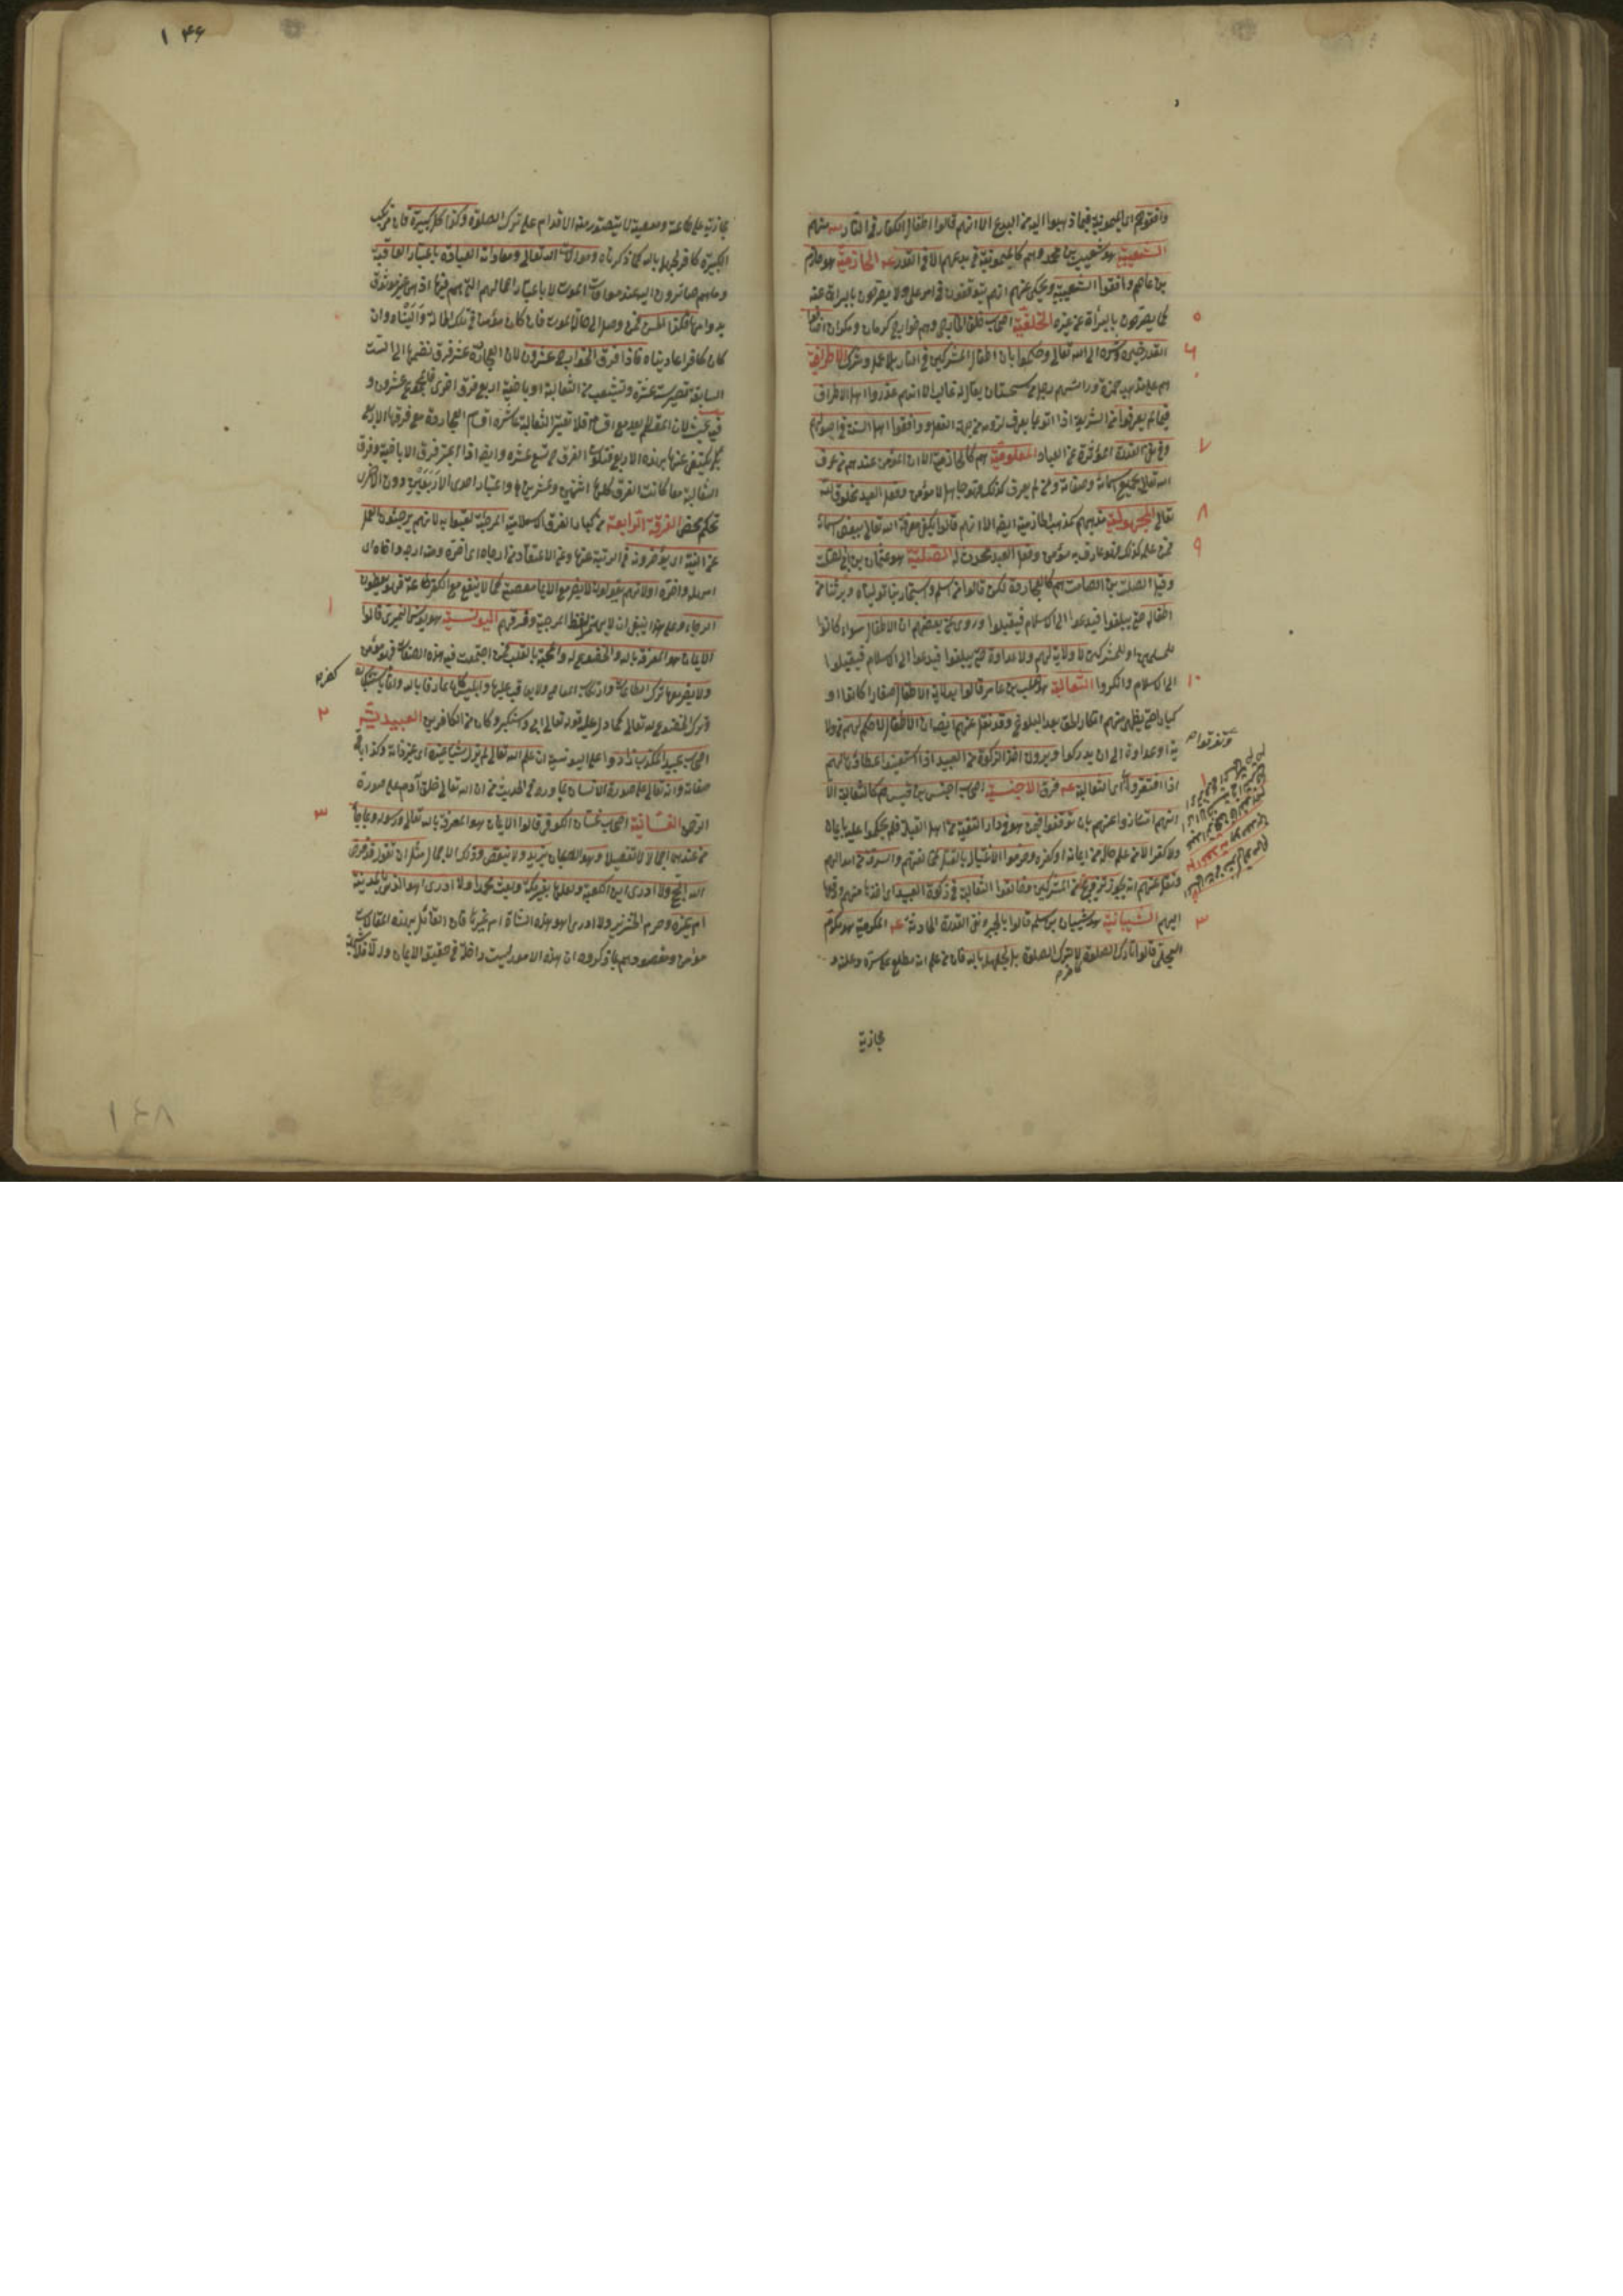 وافقوهم اى الميمونية فيما ذهبوا اليه من البدع الا انهم قالوا اطفال الكفار فى النار منهم
الشعيبية هو شعيب بن محمد وهم كالميمونية فى بدعهم الا فى القدر الحازمية هو حازم
بن عاصم وافقوا الشعيبية ويحكى عنهم انهم يتوقفون فى امر على ولا يصرحون بالبراءة عنه
كما يصرحون بالبراءة عن غيره الخلفية اصحاب خلف الخارجى وهم خوارج كرمان ومكران اضافوا
القدر خيره وشره الى الله تعالى وحكموا بان اطفال المشركين فى النار بلا عمل وشرك الاطرافية
هم على مذهب حمزة ورئيسهم رجل من سجستان يقال له غالب الا انهم عذروا اهل الاطراف
فيما لم يعرفوا من الشريعة اذا اتوا بما يعرف لزومه من جهة العقل ووافقوا اهل السنة فى اصولهم
وفى نفى القدرة المؤثرة عن العباد المعلومية هم كالحازمية الا ان المؤمن عندهم من عرف
الله تعالى بجميع اسمائه وصفاته ومن لم يعرف كذلك فهو جاهل لا مؤمن وفعل العبد مخلوق لله
تعالى المجهولية مذهبهم كمذهب الحازمية ايضا الا انهم قالوا يكفى معرفة الله تعالى ببعض اسمائه
فمن علمه كذلك فهو عارف به مؤمن وفعل العبد مخلوق له الصلتية هو عثمان بن ابى الصلت
وقيل الصلت بن الصامت هم كالعجاردة لكن قالوا من اسلم واستجار بنا توليناه وبرئنا من
اطفاله حتى يبلغوا فيدعوا الى الاسلام فيقبلوا وروى عن بعضهم ان الاطفال سواء كانوا
للمسلمين او للمشركين لا ولاية لهم ولا عداوة حتى يبلغوا فيدعوا الى الاسلام فيقبلوا
الى الاسلام وانكروا الثعالبة هو ثعلب بن عامر قالوا بولاية الاطفال صغارا كانوا او
كبارا حتى يظهر منهم انكار الحق بعد البلوغ وقد نقل عنهم ايضا ان الاطفال لا حكم لهم من ولا
ية او عداوة الى ان يدركوا ويرون اخذ الزكوة من العبيد اذا استغنوا واعطاؤها لهم
اذا افتقروا اى الثعالبة فرق الاخنسية اصحاب اخنس بن قيس هم كالثعالبة الا
انهم امتازوا عنهم بان توقفوا فيمن هو فى دار التقية من اهل القبلة فلم يحكموا عليه بايمان
ولا كفر الا من علم حاله من ايمانه او كفره وحرموا الاغتيال بالقتل لمخالفيهم والسرقة من اموالهم
ونقل عنهم انه يجوز تزويج من المشركين وخالفوا الثعالبة فى زكوة العبيد اى اخذها منهم ودفعها
اليهم الشيبانية هو شيبان بن سلمة قالوا بالجبر ونفى القدرة الحادثة المكرمية هو مكرم
العجلى قالوا تارك الصلوة كافر لا بترك الصلوة بل لجهله بالله فان من علم انه مطلع على سره وعلنه و
مجازيه
وتفرقوا
٥
٦
٧
٨
٩
١٠
٣
١٤٦
مجازيه على طاعته ومعصيته لا يتصور منه الاقدام على ترك الصلوة وكذا كل كبيرة فان مرتكب
الكبيرة كافر لجهله بالله كما ذكرناه وموالاة الله تعالى ومعاداته لعباده باعتبار العاقبة
وما هم صائرون اليه عند موافاة الموت لا باعتبار اعمالهم التى هم فيها اذ هى غير موثوق
بدوامها فكذا نحن فمن وصل الى حال الموت فان كان مؤمنا فى تلك الحالة واليناه وان
كان كافرا عاديناه فاذا فرق الخوارج عشرون لان العجاردة عشر فرق نضمها الى الست
السابقة تصير ست عشرة وتتشعب من الثعالبة اوباضية اربع فرق اخرى فالمجموع عشرون و
فيه بحث لان
الثعالبة معا كانت الفرق كلها اثنتين وعشرين واعتبار احدى الاربعتين دون الاخرى
تحكم محض الفرقة الرابعة من كبار الفرق الاسلامية المرجئة لقبوا به لانهم يرجئون العمل
عن النية اى يؤخرونه فى الرتبة عنها وعن الاعتقاد من ارجاه اى اخره ومنه ارجه واخاه اى
امهله واخره او لانهم يقولون لا يضر مع الايمان معصية كما لا ينفع مع الكفر طاعة فهم يعطون
الرجاء وعلى هذا ينبغى ان لا يهمز لفظ المرجية وفرقهم اليونسية هو يونس النميرى قالوا
الايمان هو المعرفة بالله والخضوع له والمحبة بالقلب فمن اجتمعت فيه هذه الصفات فهو مؤمن
ولا يضر معها ترك الطاعات وارتكاب المعاصى ولا يعاقب عليها وابليس كان عارفا بالله وانما كفر باستكباره
وترك الخضوع لله تعالى كما دل عليه قوله تعالى ابى واستكبر وكان من الكافرين العبيدية
اصحاب عبيد المكتئب زادوا على اليونسية ان علم الله تعالى لم يزل شيئا غيره اى غير ذاته وكذا باقى
صفاته وانه تعالى على صورة الانسان لما ورد فى الحديث من ان الله تعالى خلق آدم على صورة
الرحمن الغسانية اصحاب غسان الكوفى قالوا الايمان هو المعرفة بالله تعالى ورسوله وبما جاء
من عندهما اجمالا لا تفصيلا وهو الايمان يزيد ولا ينقص وذلك الاجمال مثل ان تقول قد فرض
الله الحج ولا ادرى اين الكعبة ولعلها بغير مكة وبعث محمدا ولا ادرى اهو الذى بالمدينة
ام غيره وحرم الخنزير ولا ادرى اهو هذه الشاة ام غيرها فان القائل بهذه المقالات
مؤمن ومقصودهم بما ذكروه ان هذه الامور ليست داخلة فى حقيقة الايمان والا فلا شبهة
١
٢
٣
١٤٨